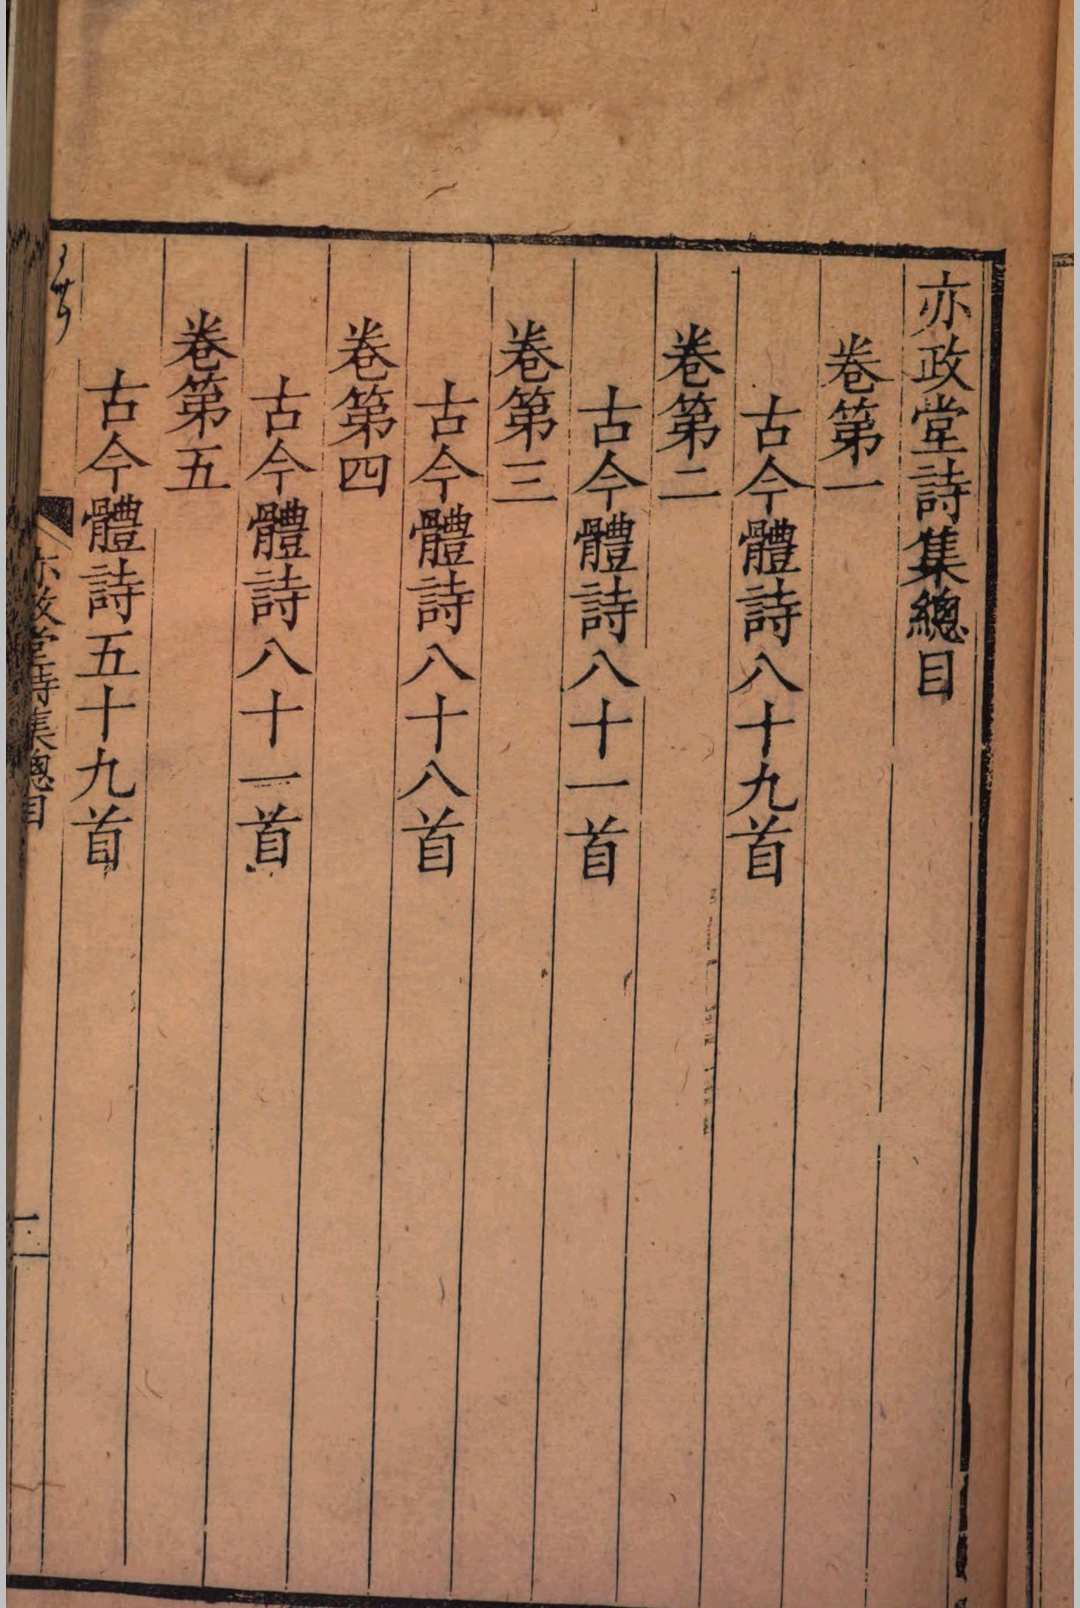 亦政堂詩集總目
卷第一
古今體詩八十九首
卷第二
古今體詩八十一首
卷第三
古今體詩八十八首
卷第四
古今體詩八十一首
卷第五
古今體詩五十九首
亦政堂詩集總目